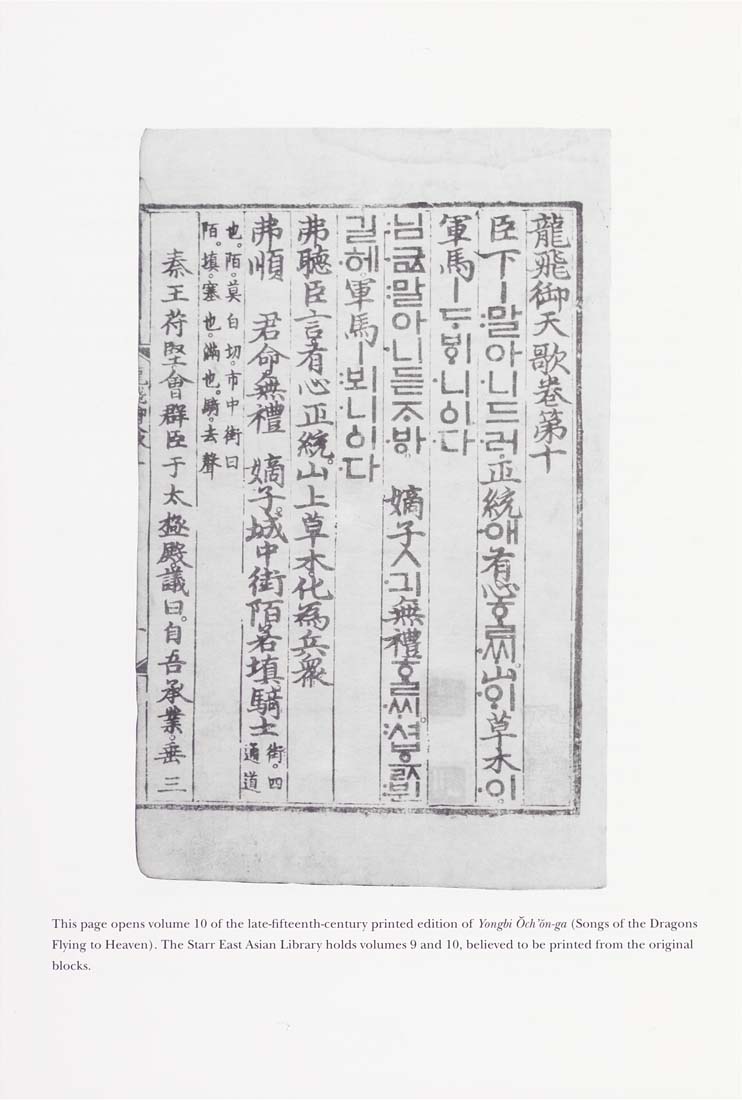 龍飛御天歌卷第十
臣下ㅣ말아니드러正統애有心ᄒᆞᆯᄊᆡ山ᄋᆡ草木이
軍馬ㅣᄃᆞᄫᆡ니ᅌᅵ다
님긊말아니듣ᄌᆞᄫᅡ 嫡子ㅅ긔無禮ᄒᆞᆯᄊᆡ셔ᄫᅳᆳ뷘
길헤軍馬ㅣ뵈니ᅌᅵ다
弗聽臣言有心正統。山上草木化為兵衆
弗順 君命無禮 嫡子。城中街陌若塡騎士
街。四
通道
也。陌。莫白切。市中街曰
陌。塡。塞也。滿也。騎。去聲
秦王苻堅會群臣于太極殿。議曰。自吾承業。垂三
This page opens volume 10 of the late-fifteenth-century printed edition of Yongbi Ŏch'ŏn-ga (Songs of the Dragons
Flying to Heaven). The Starr East Asian Library holds volumes 9 and 10, believed to be printed from the original
blocks.